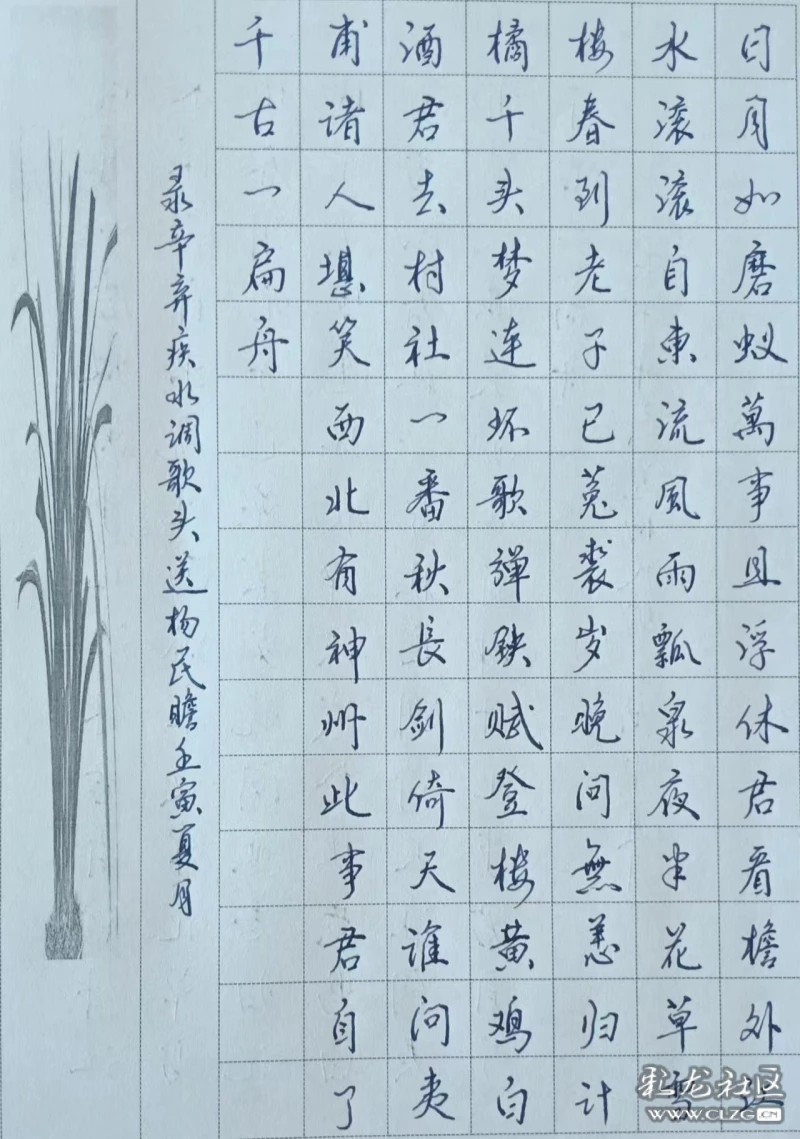 日月如磨蚁萬事且浮休君看檐外江
水滚滚自東流風雨瓢泉夜半花草雪
楼春到老子已菟裘岁晚问無恙归计
橘千头梦连环歌彈铗赋登楼黄鸡白
酒君去村社一番秋長剑倚天谁问夷
甫诸人堪笑西北有神州此事君自了
千古一扁舟
录辛弃疾水调歌头送杨民瞻壬寅夏月
彩龙社区
WWW.CLZG.CN